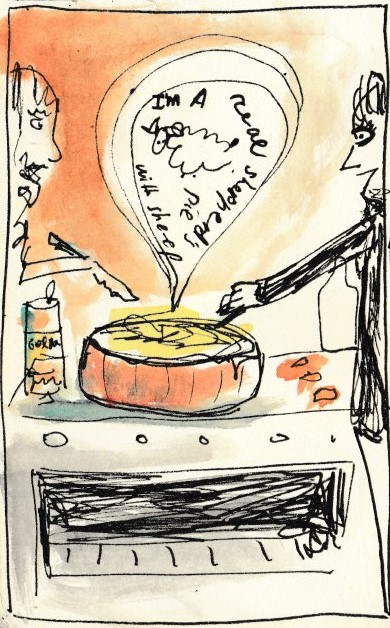 I'M A
real shepherd's
pie
with sheep